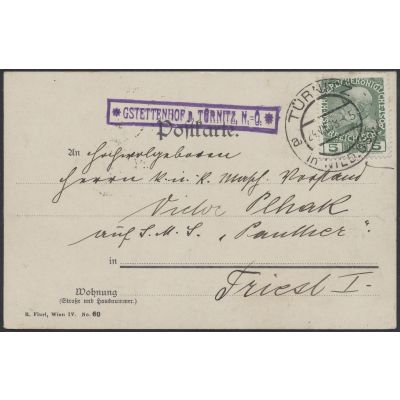 * GSTETTENHOF b. TÜRNITZ, N.-Ö. *
Postkarte.
TÜRNITZ
a
in NIED.
5 5
An Hochwolgeboren
Herrn k. u. k. Masch. Vorstand
Victor Plhak
auf S.M.S. "Panther"
in
Triest I.
Wohnung
(Straße und Hausnummer.)
R. Fürl, Wien IV. No. 60